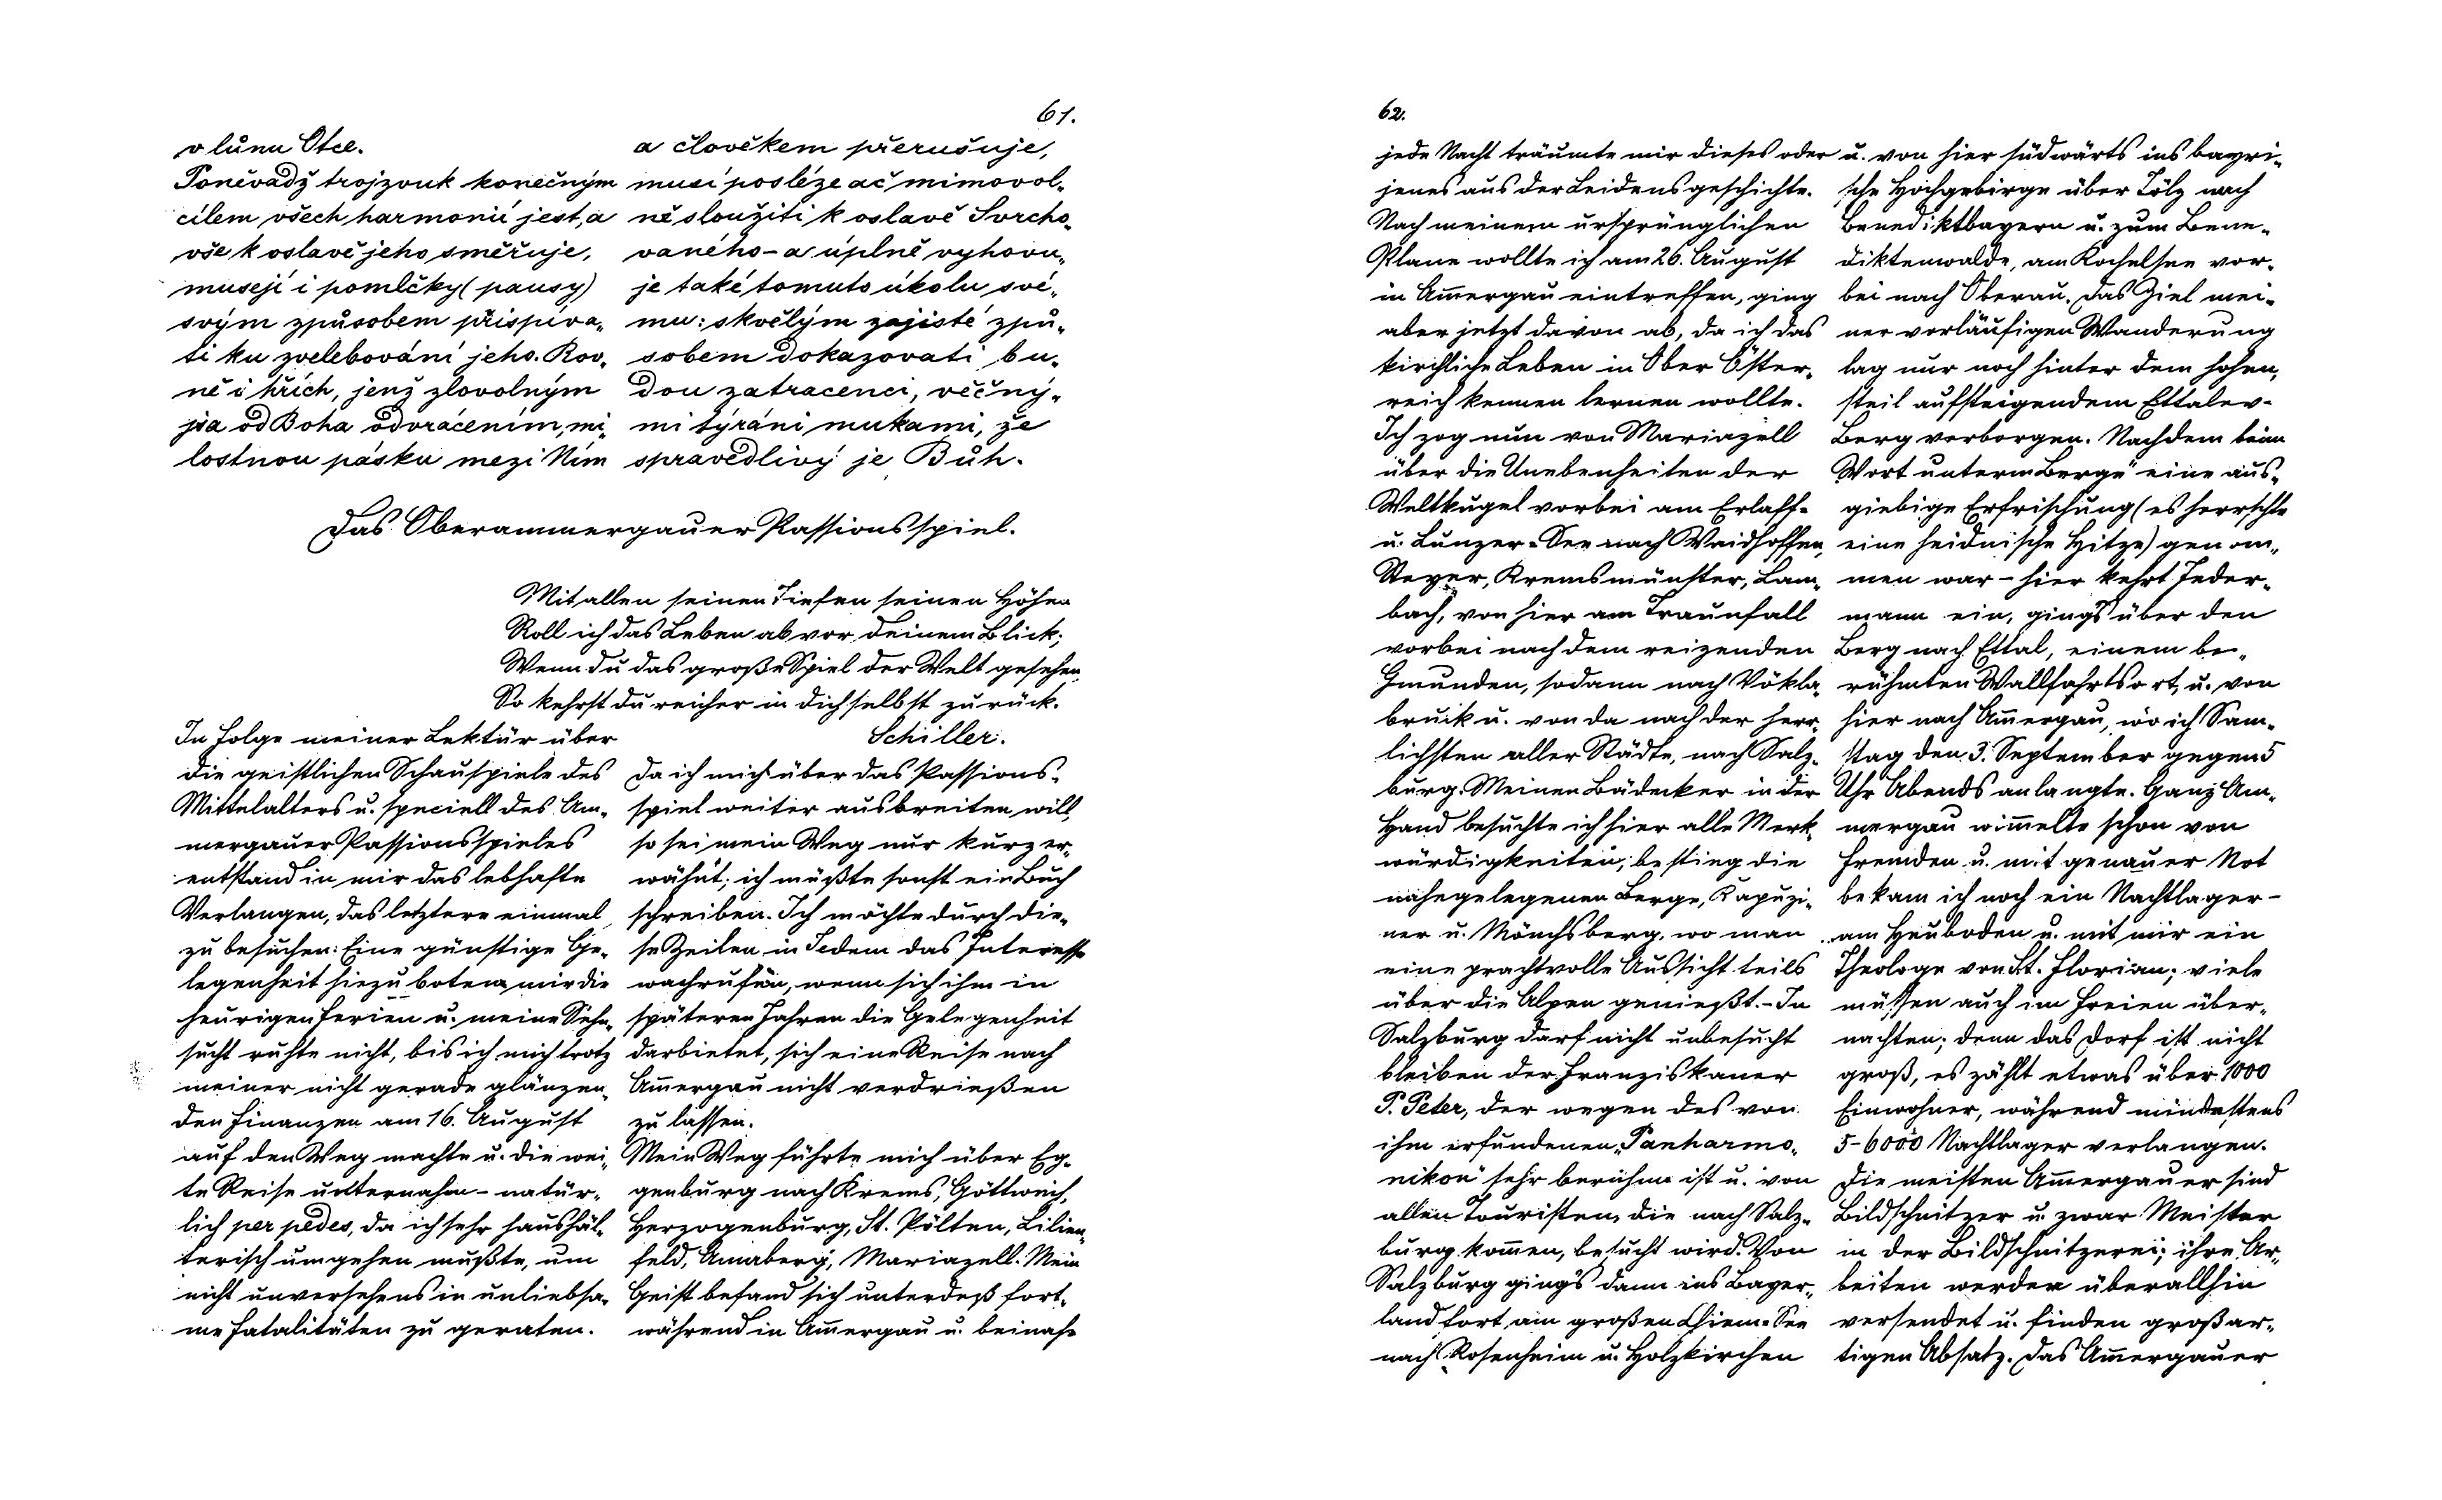 61.
v lůnu Otce.
Poněvadž trojzvuk konečným
cílem všech harmonií jest, a
vše k oslavě jeho směřuje,
musejí i pomlčky (pausy)
svým způsobem přispíva„
ti ku zvelebování jeho. Rov„
ně i hřích, jenž zlovolným
jsa od Boha odvrácením, mi„
lostnou pásku mezi Ním
a člověkem přerušuje,
musí posléze ač mimovol„
ně sloužiti k oslavě Svrcho„
vaného - a úplně vyhovu„
je také tomuto úkolu své„
mu: skvělým zajisté způ„
sobem dokazovati bu„
dou zatracenci, věčný„
mi týráni mukami, že
spravedlivý je Bůh.
Das Oberammergauer Passionsspiel.
Mit allen seinen Tiefen seinen Höhen
Roll ich das Leben ab vor deinem Blick;
Wenn du das große Spiel der Welt gesehen
So kehrst du reicher in dich selbst zurück.
Schiller.
In Folge meiner Lektür über
die geistlichen Schauspiele des
Mittelalters u. speciell des Am„
mergauer Passionsspieles
entstand in mir das lebhafte
Verlangen, das letztere einmal
zu besuchen: Eine günstige Ge„
legenheit hiezu boten mir die
heurigen Ferien u. meine Sehn„
sucht ruhte nicht, bis ich mich trotz
meiner nicht gerade glänzen„
den Finanzen am 16. August
auf den Weg machte u. die wei„
te Reise unternahm - natür„
lich per pedes, da ich sehr haushäl„
terisch umgehen mußte, um
nicht unversehens in unliebsa„
me Fatalitäten zu geraten.
Da ich mich über das Passions„
spiel weiter ausbreiten will,
so sei mein Weg nur kurz er„
wähnt; ich müßte sonst ein Buch
schreiben. Ich möchte durch die„
se Zeilen in Jedem das Interesse
wachrufen, wenn sich ihm in
späteren Jahren die Gelegenheit
darbietet, sich eine Reise nach
Am̄ergau nicht verdrießen
zu lassen.
Mein Weg führte mich über Eg„
genburg nach Krems, Göttweih,
Herzogenburg, St. Pölten, Lilien„
feld, Annaberg, Mariazell. Mein
Geist befand sich unterdeß fort„
während in Am̄ergau u. beinahe
62.
jede Nacht träumte mir dieses oder
jenes aus der Leidensgeschichte.
Nach meinem ursprünglichen
Plane wollte ich am 26. August
in Am̄ergau eintreffen, ging
aber jetzt davon ab, da ich das
kirchliche Leben in Ober Öster„
reich kennen lernen wollte.
Ich zog nun von Mariazell
über die Unebenheiten der
Weltkugel vorbei am Erlaff-
u. Lunzer-See nach Waidhoffen,
Steyer, Kremsmünster, Lam„
bach, von hier am Traunfall
vorbei nach dem reizenden
Gmunden, sodann nach Vökla„
bruck u. von da nach der herr„
lichsten aller Städte, nach Salz„
burg. Meinen Bädecker in der
Hand besuchte ich hier alle Merk„
würdigkeiten, bestieg die
nahegelegenen Berge, Kapuzi„
ner u. Mönchsberg, wo man
eine prachtvolle Aussicht teils
über die Alpen genießt. - In
Salzburg darf nicht unbesucht
bleiben der Franziskaner
P. Peter, der wegen des von
ihm erfundenen „Panharmo„
nikon“ sehr berühmt ist u. von
allen Touristen, die nach Salz„
burg kom̄en, besucht wird. Von
Salzburg ging's dann ins Bayer„
land fort, am großen Chiem-See
nach Rosenheim u. Holzkirchen
u. von hier südwärts ins bayri„
sche Hochgebirge über Tölz nach
Benediktbayern u. zum Bene„
diktenwalde, am Kochelsee vor„
bei nach Oberau. Das Ziel mei„
ner vorläufigen Wanderung
lag nur noch hinter dem hohen,
steil aufsteigendem Ettaler-
Berg verborgen. Nachdem beim
„Wort unterm Berge“ eine aus„
giebige Erfrischung (es herrschte
eine heidnische Hitze) genom„
men war - hier kehrt Jeder„
mann ein, ging's über den
Berg nach Ettal, einem be„
rühmten Wallfahrtsort, u. von
hier nach Am̄ergau, wo ich Sam„
stag den 3. September gegen 5
Uhr Abends anlangte. Ganz Am„
mergau wim̄elte schon von
Fremden u. mit genauer Not
bekam ich noch ein Nachtlager -
am Heuboden u. mit mir ein
Theologe von St. Florian; viele
müssen auch im Freien über„
nachten; denn das Dorf ist nicht
groß, es zählt etwas über 1000
Einwohner, während mindestens
5-6000 Nachtlager verlangen.
Die meisten Am̄ergauer sind
Bildschnitzer u. zwar Meister
in der Bildschnitzerei; ihre Ar„
beiten werden überallhin
versendet u. finden großar„
tigen Absatz. Das Am̄ergauer